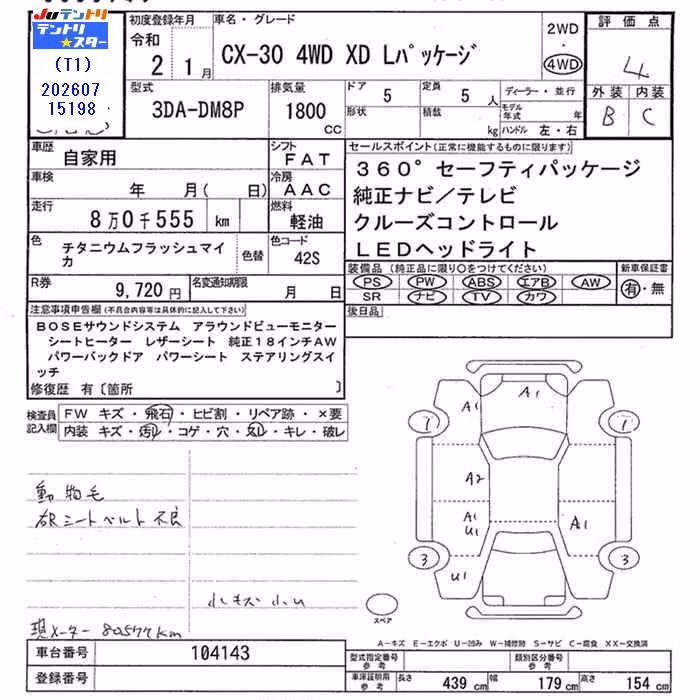 JUテントリ
テントリ★スター
(T1)
202607
15198
初度登録年月
令和
2 1月
車名・グレード
CX-30 4WD XD Lパッケージ
2WD
・
4WD
評価点
4
外装 内装
B C
型式
3DA-DM8P
排気量
1800
CC
ドア 5
形状
定員 5 人
積載 kg
ディーラー・並行
モデル年式 年
ハンドル 左・右
車歴 自家用
シフト FAT
車検 年 月( 日)
冷房 AAC
走行 8万0千555 km
燃料 軽油
色 チタニウムフラッシュマイカ
色替
色コード 42S
R券 9,720円
名変通知期限 月 日
セールスポイント(正常に機能するものに限ります)
360°セーフティパッケージ
純正ナビ/テレビ
クルーズコントロール
LEDヘッドライト
装備品(純正品に限り○をつけてください)
PS PW ABS エアB AW
SR ナビ TV カワ
新車保証書
有・無
後日品
注意事項申告欄(不具合内容等は具体的に記入して下さい)
BOSEサウンドシステム アラウンドビューモニター
シートヒーター レザーシート 純正18インチAW
パワーバックドア パワーシート ステアリングスイ
ッチ
修復歴 有〔箇所 〕
検査員記入欄
FW キズ・飛石・ヒビ割・リペア跡・×要
内装 キズ・汚レ・コゲ・穴・スレ・キレ・破レ
動物毛
右Rシートベルト不良
小キズ小凹
現メーター 80577km
A1
1
1
A2
A1
U1
A1
3
3
U1
スペア
A-キズ E-エクボ U-凹み W-補修跡 S-サビ C-腐食 XX-交換済
車台番号 104143
登録番号
型式指定番号参考
類別区分番号参考
車庫証明用参考 長さ 439 cm 幅 179 cm 高さ 154 cm